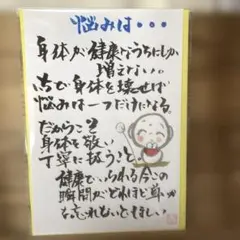 悩みは・・・
身体が健康なうちにしか
増えない。
して身体を壊せば
悩みは一つだけになる。
だからこそ
身体を敬い
丁寧に扱うこと
健康でいられる今この
瞬間がどれほど尊いか
忘れないでほしい